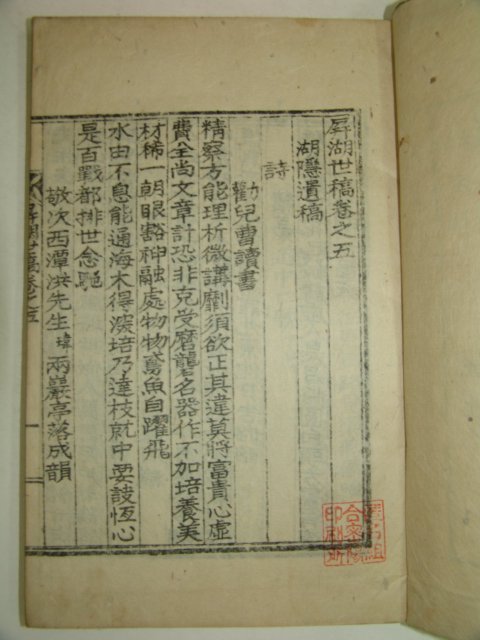 屛湖世稿卷之五
湖隱遺稿
詩
勸兒曹讀書
精察方能理析微講劘須欲正其違莫將富貴心虛
費全尚文章計恐非克受磨礱名器作不加培養美
材稀一朝眼豁神融處物物鳶魚自躍飛
水由不息能通海木得深培乃達枝就中要設恆心
是百戰都排世念馳
敬次西潭洪先生瑋兩巖亭落成韻